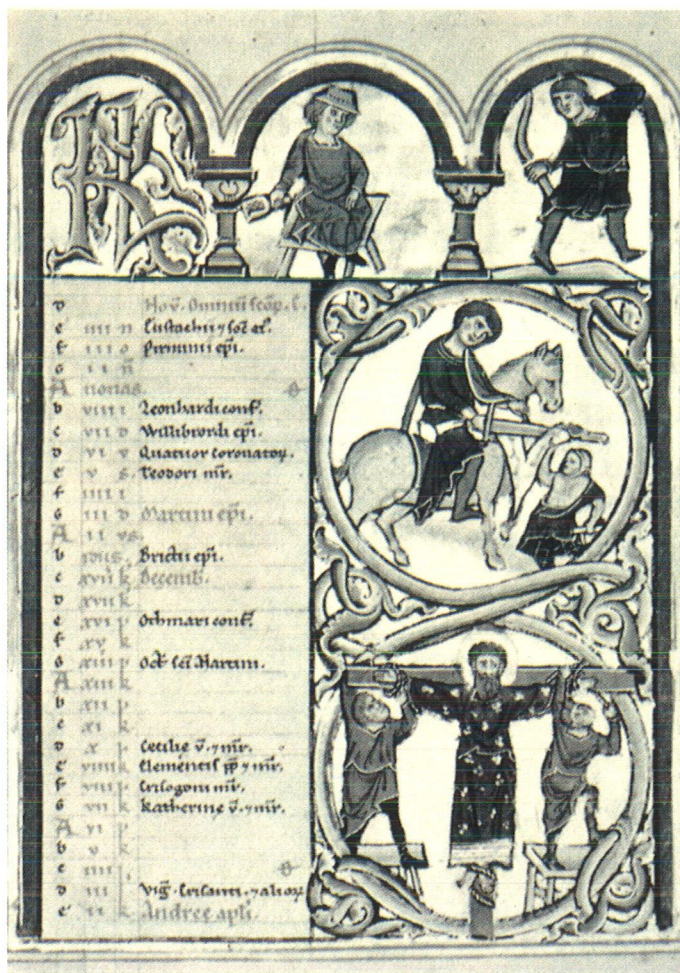 KL
d Nov̄. Omniū scōꝝ. l.
e iiii n Eustachii ⁊ soc̄ ei.
f iii o Pirminii ep̄i.
g ii n̄
A nonas.
b viii i Leonhardi conf.
c vii d Willibrordi ep̄i.
d vi v Quatuor coronatoꝝ.
e v s. Teodori mr̄.
f iiii i
g iii d Martini ep̄i.
A ii vs.
b idus. Brictii ep̄i.
c xviii k Decemb̄.
d xvii k
e xvi p Othmari conf.
f xv k
g xiiii p Oct̄ sc̄i Martini.
A xiii k
b xii p
c xi k
d x p Cecilie v̄. ⁊ mr̄.
e viiii k Clementis pp̄ ⁊ mr̄.
f viii p Crisogoni mr̄.
g vii k Katherine v̄. ⁊ mr̄.
A vi p
b v k
c iiii p
d iii Viḡ. Crisanti. ⁊ alioꝝ
e ii k Andree apl̄i.